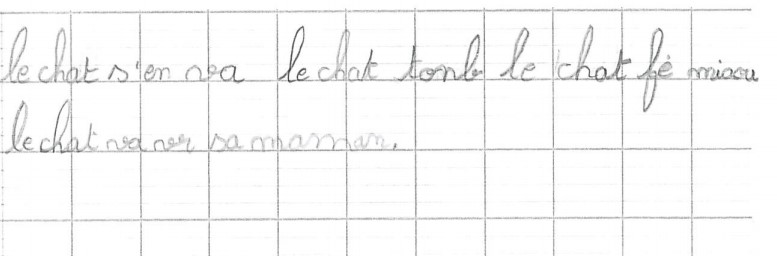 le chat s'en va le chat tonb le chat fé miaou
le chat va ver sa maman.